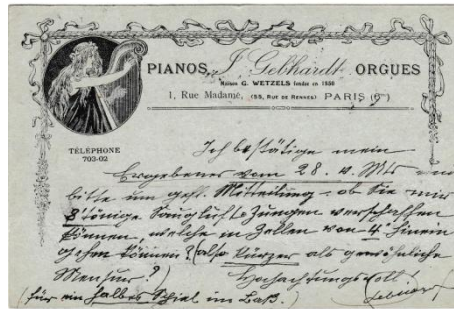 PIANOS, J. Gebhardt ORGUES
Maison G. WETZELS fondée en 1850
1, Rue Madame, (55, RUE DE RENNES) PARIS (6me)
TÉLÉPHONE
703-02
Ich bestätige mein
Ergebenes vom 28. v. Mts
bitte um gefl. Mitteilung ob Sie mir
8' tönige Saugluft Zungen verschaffen
können, welche in Zellen von 4'
gehen können? (also kürzer als gewöhnliche
Mensur?) Hochachtungsvoll
(für ein halbes Spiel im Baß.)